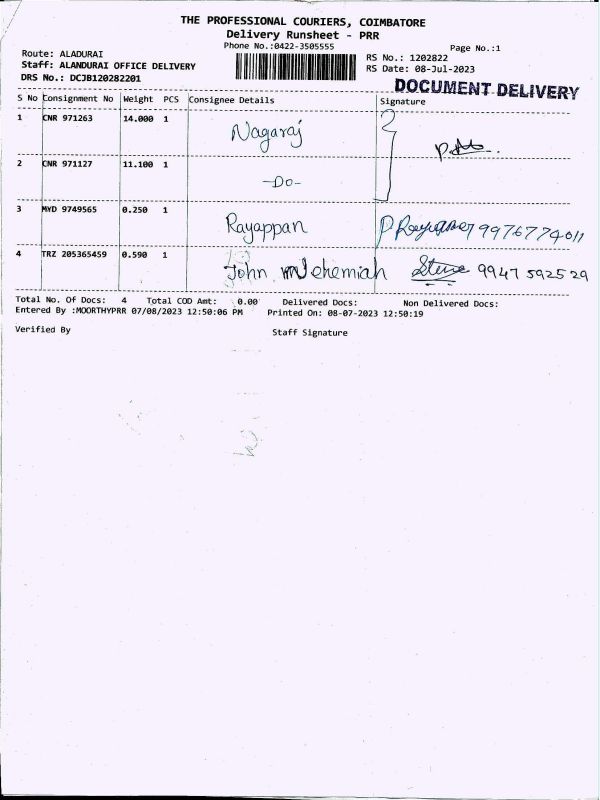 THE PROFESSIONAL COURIERS, COIMBATORE
Delivery Runsheet - PRR
Phone No.:0422-3505555
Page No.:1
Route: ALADURAI
RS No.: 1202822
Staff: ALANDURAI OFFICE DELIVERY
RS Date: 08-Jul-2023
DRS No.: DCJB120282201
DOCUMENT DELIVERY
S No Consignment No Weight PCS Consignee Details Signature
1 CNR 971263 14.000 1 Nagaraj
2 CNR 971127 11.100 1 -Do-
3 MYD 9749565 0.250 1 Rayappan 9976774011
4 TRZ 205365459 0.590 1 John Nehemiah 9947 592529
Total No. Of Docs: 4 Total COD Amt: 0.00 Delivered Docs: Non Delivered Docs:
Entered By :MOORTHYPRR 07/08/2023 12:50:06 PM Printed On: 08-07-2023 12:50:19
Verified By Staff Signature